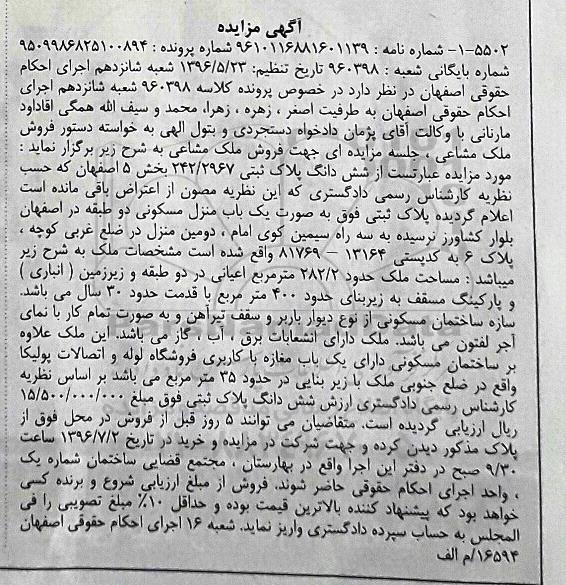 آگهی مزایده
۱-۵۵۰۲- شماره نامه : ۹۶۱۰۱۱۶۸۸۱۶۰۱۱۳۹ شماره پرونده : ۹۵۰۹۹۸۶۸۲۵۱۰۰۸۹۴
شماره بایگانی شعبه : ۹۶۰۳۹۸ تاریخ تنظیم: ۱۳۹۶/۵/۲۳ شعبه شانزدهم اجرای احکام
حقوقی اصفهان در نظر دارد در خصوص پرونده کلاسه ۹۶۰۳۹۸ شعبه شانزدهم اجرای
احکام حقوقی اصفهان به طرفیت اصغر ، زهره ، زهرا، محمد و سیف الله همگی اقاداود
مارنانی با وکالت آقای پژمان دادخواه دستجردی و بتول الهی به خواسته دستور فروش
ملک مشاعی ، جلسه مزایده ای جهت فروش ملک مشاعی به شرح زیر برگزار نماید :
مورد مزایده عبارتست از شش دانگ پلاک ثبتی ۲۴۲/۲۹۶۷ بخش ۵ اصفهان که حسب
نظریه کارشناس رسمی دادگستری که این نظریه مصون از اعتراض باقی مانده است
اعلام گردیده پلاک ثبتی فوق به صورت یک باب منزل مسکونی دو طبقه در اصفهان
بلوار کشاورز نرسیده به سه راه سیمین کوی امام ، دومین منزل در ضلع غربی کوچه ،
پلاک ۶ به کدپستی ۱۳۱۶۴ – ۸۱۷۶۹ واقع شده است مشخصات ملک به شرح زیر
میباشد : مساحت ملک حدود ۲۸۲/۲ مترمربع اعیانی در دو طبقه و زیرزمین ( انباری )
و پارکینگ مسقف به زیربنای حدود ۴۰۰ متر مربع با قدمت حدود ۳۰ سال می باشد.
سازه ساختمان مسکونی از نوع دیوار باربر و سقف تیرآهن و به صورت تمام کار با نمای
آجر لفتون می باشد. ملک دارای انشعابات برق ، آب ، گاز می باشد. این ملک علاوه
بر ساختمان مسکونی دارای یک باب مغازه با کاربری فروشگاه لوله و اتصالات پولیکا
واقع در ضلع جنوبی ملک با زیر بنایی در حدود ۳۵ متر مربع می باشد بر اساس نظریه
کارشناس رسمی دادگستری ارزش شش دانگ پلاک ثبتی فوق مبلغ ۱۵/۵۰۰/۰۰۰/۰۰۰
ریال ارزیابی گردیده است. متقاضیان می توانند ۵ روز قبل از فروش در محل فوق از
پلاک مذکور دیدن کرده و جهت شرکت در مزایده و خرید در تاریخ ۱۳۹۶/۷/۲ ساعت
۹/۳۰ صبح در دفتر این اجرا واقع در بهارستان ، مجتمع قضایی ساختمان شماره یک
، واحد اجرای احکام حقوقی حاضر شوند. فروش از مبلغ ارزیابی شروع و برنده کسی
خواهد بود که پیشنهاد کننده بالاترین قیمت بوده و حداقل ۱۰٪ مبلغ تصویبی را فی
المجلس به حساب سپرده دادگستری واریز نماید. شعبه ۱۶ اجرای احکام حقوقی اصفهان
۱۶۵۹۴/م الف